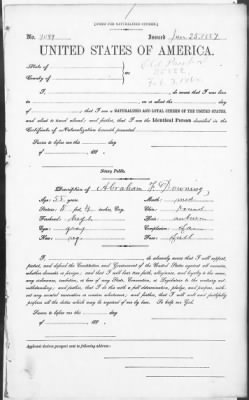 [FORM FOR NATURALIZED CITIZEN.]
No. Issued Jan 28, 1887
UNITED STATES OF AMERICA.
State of
County of
I, do swear that I was born
in on or about the day of
, that I am a NATURALIZED AND LOYAL CITIZEN OF THE UNITED STATES,
and about to travel abroad; and further, that I am the Identical Person described in the
Certificate of Naturalization herewith presented.
Sworn to before me this day
of 188
Notary Public.
Description of Abraham F. Downing
Age: years Mouth: med
Stature: 5 feet inches, Eng. Chin: round
Forehead: high Hair: auburn
Eyes: gray Complexion: fair
Nose: reg. Face: full
I, do solemnly swear that I will support,
protect, and defend the Constitution and Government of the United States against all enemies,
whether domestic or foreign; and that I will bear true faith, allegiance, and loyalty to the same,
any ordinance, resolution, or law of any State, Convention, or Legislature to the contrary not-
withstanding; and further, that I do this with a full determination, pledge, and purpose, with-
out any mental reservation or evasion whatsoever; and further, that I will well and faithfully
perform all the duties which may be required of me by law. So help me God.
Sworn to before me this day
of 188
Applicant desires passport sent to following address: